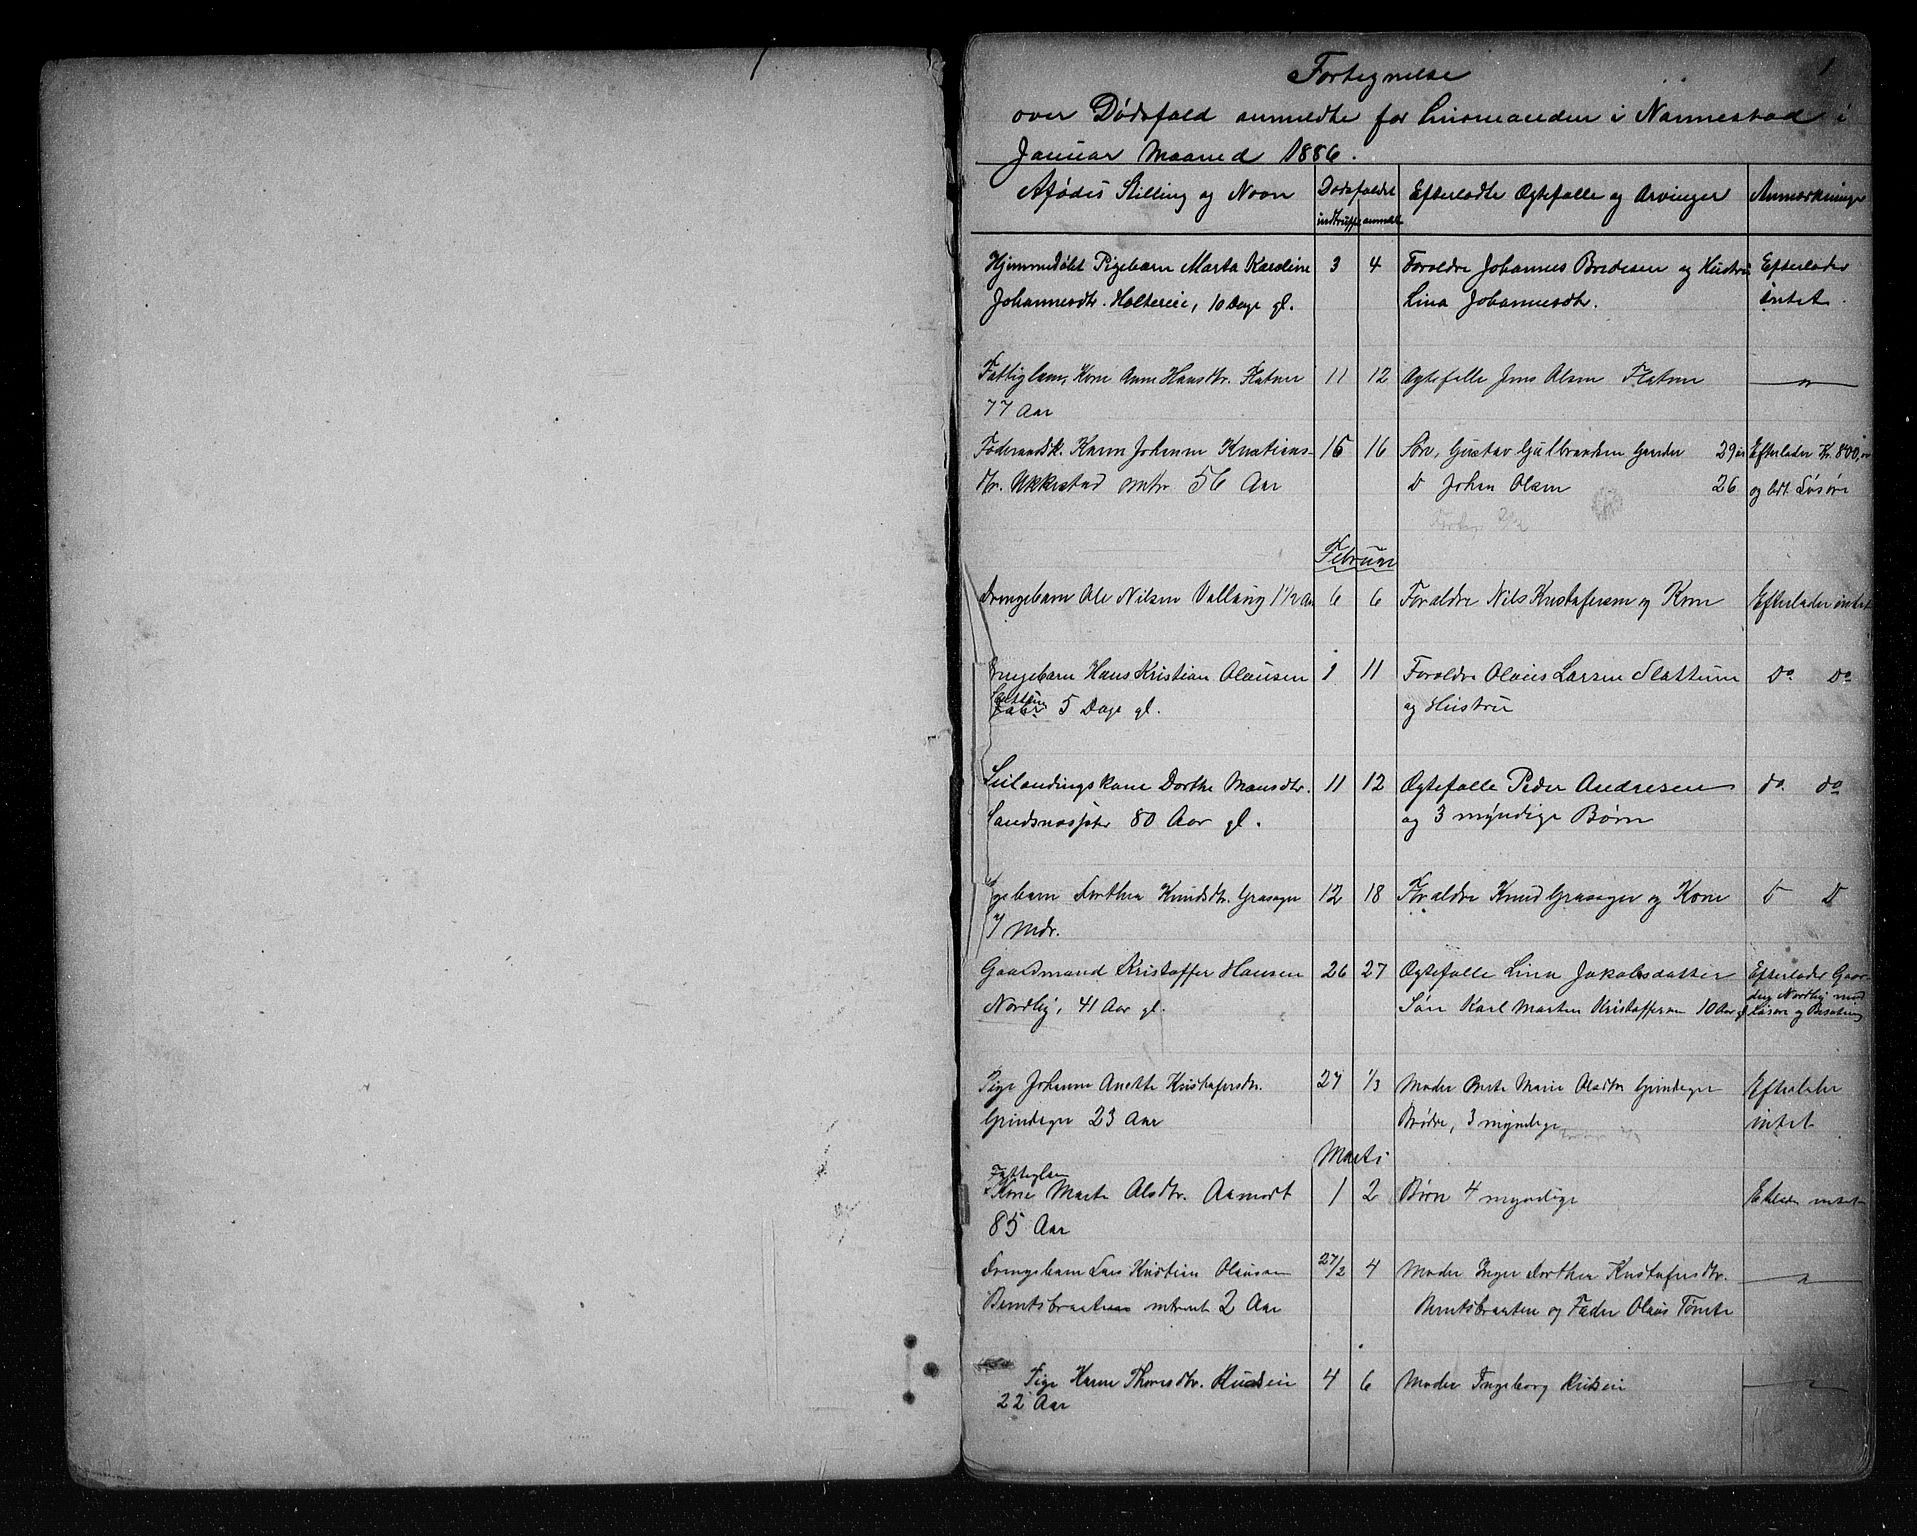 1
Fortegnelse
over Dødsfald anmeldte for Linsmanden i Nannestad i
Januar Maaned 1886.
Afdødes Stilling og Navn Dødsfaldet Efterladte Ægtefælle og Arvinger Anmærkninger
indtruffet anmeldt
Hjemmedøbt Pigebarn Marta Karoline 3 4 Forældre Johannes Bredesen og Hustru Efterlader
Johannesdtr. Holtereie, 10 Dage gl. Lina Johannesdtr. intet.
Fattiglem, Kone Anne Hansdtr. Flatner 11 12 Ægtefælle Jens Olsen Flatner — " —
77 Aar
Føderaadsk. Karen Johanne Kristians- 15 16 Søn, Gustav Gulbrandsen 29 aar Efterlader Kr. 800,
dtr. Ukkestad omtr. 56 Aar D Johan Olsen 26 og lidt Løsøre
Februar
Drengebarn Ole Nilsen Vallang 1 1/2 Aar 6 6 Forældre Nils Kristofersen og Kone Efterlader intet
Drengebarn Hans Kristian Olausen 1 11 Forældre Olaus Larsen Slattum Do Do
5 Dage gl. og Hustru
Kone Dorthe Mansdtr. 11 12 Ægtefælle Peder Andresen do do
80 Aar gl. og 3 myndige Børn
Pigebarn Dorthea Knudsdtr. Grasager 12 18 Forældre Knud Grasager og Kone D D
7 Mdr.
Gaardmand Kristoffer Hansen 26 27 Ægtefælle Lina Jakobsdatter Efterlader Gaar-
Nordby, 41 Aar gl. Søn Karl Marten Kristoffersen 10 Aar gl den Nordby med
Løsøre og Besætning
Pige Johanne Anette Kristofersdtr. 27 1/3 Moder Berte Marie Olsdtr Grindager Efterlader
Grindager 23 Aar Brødre, 3 myndige intet
Marts
Fattiglem
Kone Marte Olsdtr. Aamodt 1 2 Børn 4 myndige Efterlader intet
85 Aar
Drengebarn Lars Kristian Olausen 27/2 4 Moder Inger Dorthea Kristofersdtr. — " —
Berntsbraaten omtrent 2 Aar Berntsbraaten og Fader Olaus Tømte
Pige Karen Thoresdtr. Rudseie 4 6 Moder Ingeborg Rudseie — " —
22 Aar